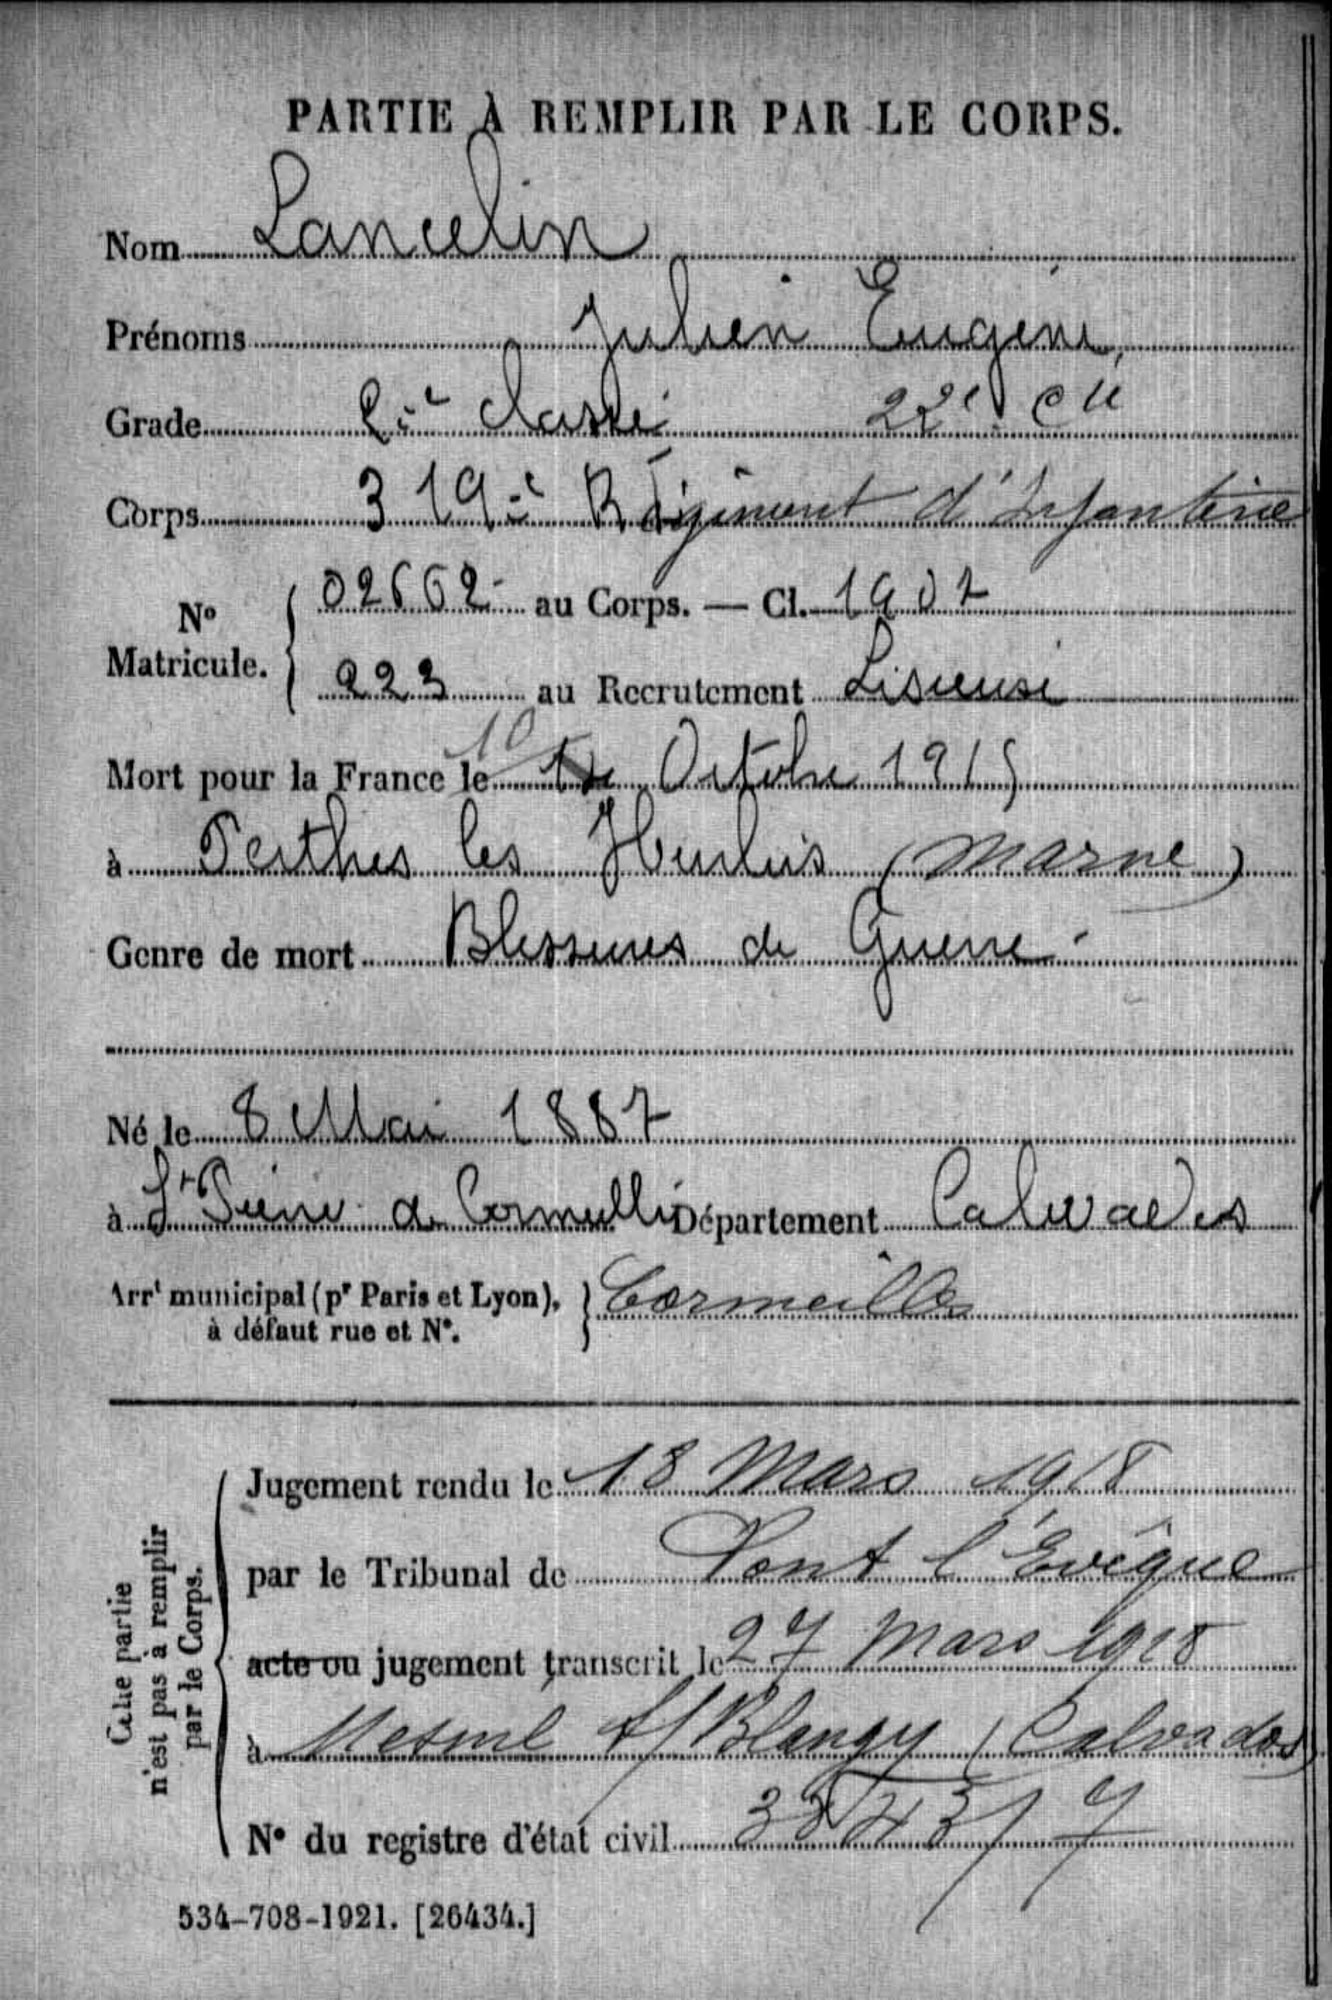 PARTIE À REMPLIR PAR LE CORPS.
Nom Lancelin
Prénoms Julien Eugène
Grade 2e classe 22e Cie
Corps 319e Régiment d'Infanterie
No Matricule. 02662 au Corps. — Cl. 1907
223 au Recrutement Lisieux
Mort pour la France le 10 Octobre 1915
à Perthes les Hurlus (Marne)
Genre de mort Blessures de Guerre
Né le 8 Mai 1887
à St Pierre de Cormeilles Département Calvados
Arrt municipal (pr Paris et Lyon), à défaut rue et No. Cormeilles
Cette partie n'est pas à remplir par le Corps.
Jugement rendu le 18 Mars 1918
par le Tribunal de Pont l'Evêque
acte ou jugement transcrit le 27 Mars 1918
à Mesnil s/ Blangy (Calvados)
No du registre d'état civil
534-708-1921. [26434.]